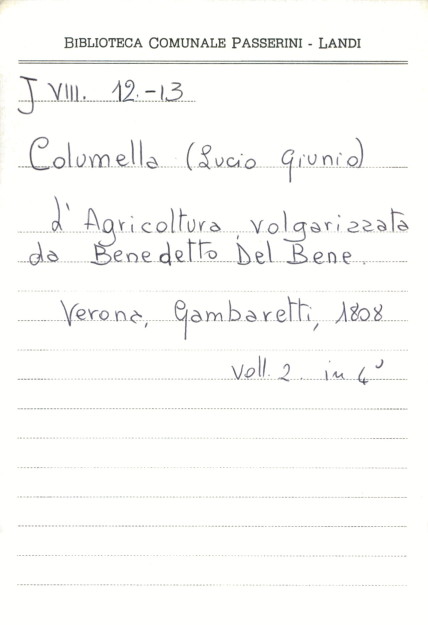 BIBLIOTECA COMUNALE PASSERINI - LANDI
J VIII. 12.-13
Columella (Lucio Giunio)
d'Agricoltura volgarizzata
da Benedetto Del Bene.
Verona, Gambaretti, 1808
Voll. 2. in 4°